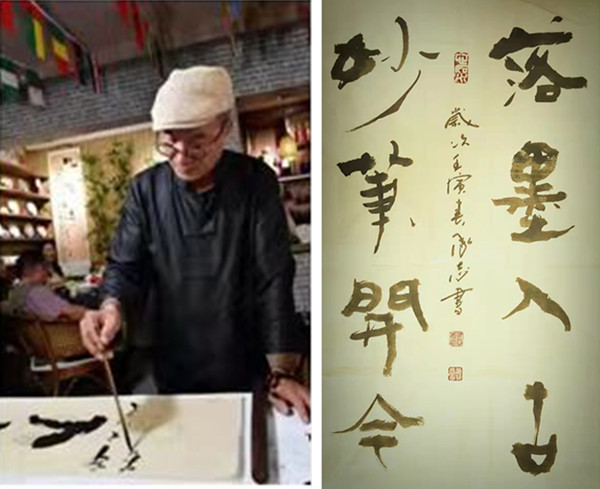 落墨入古
妙筆開今
歲次壬寅春承志書